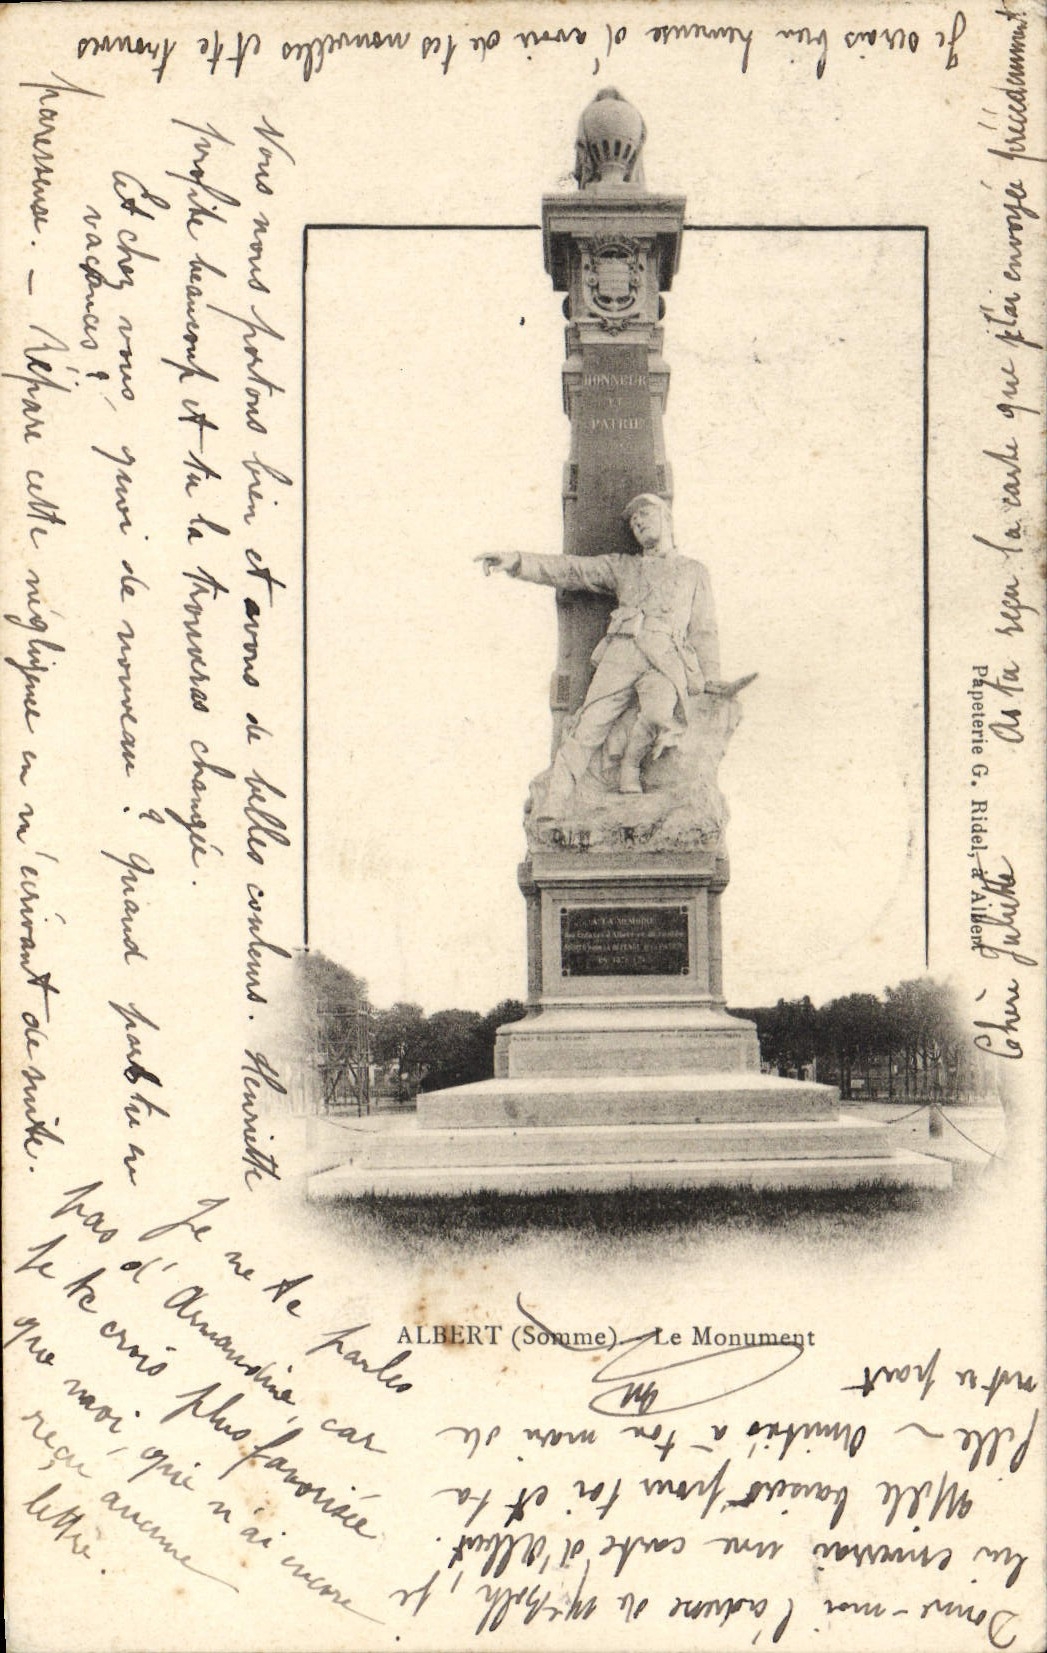 Chère Juliette
As tu reçu la carte que j't'ai envoyée précédemment
Je serais bien heureuse d'avoir de tes nouvelles et te trouves
paresseuse. — Répare cette négligence en m'écrivant de suite.
Et chez vous, quoi de nouveau ? Quand pars tu en
vacances ?
Nous nous portons bien et avons de belles couleurs. Henriette
profite beaucoup et tu la trouveras changée.
Je ne te parles
pas d'Amandine, car
Je te crois plus favorisée
que moi, qui n'ai encore
reçu aucune
lettre.
Donne-moi l'adresse de Je
lui enverrai une carte d'Albert.
Mille baisers pour toi et ta
fille — Amitiés à ton mari de
notre part
HONNEUR
ET
PATRIE
A LA MEMOIRE
EN 1870-71
Papeterie G. Ridel, à Albert
ALBERT (Somme). — Le Monument